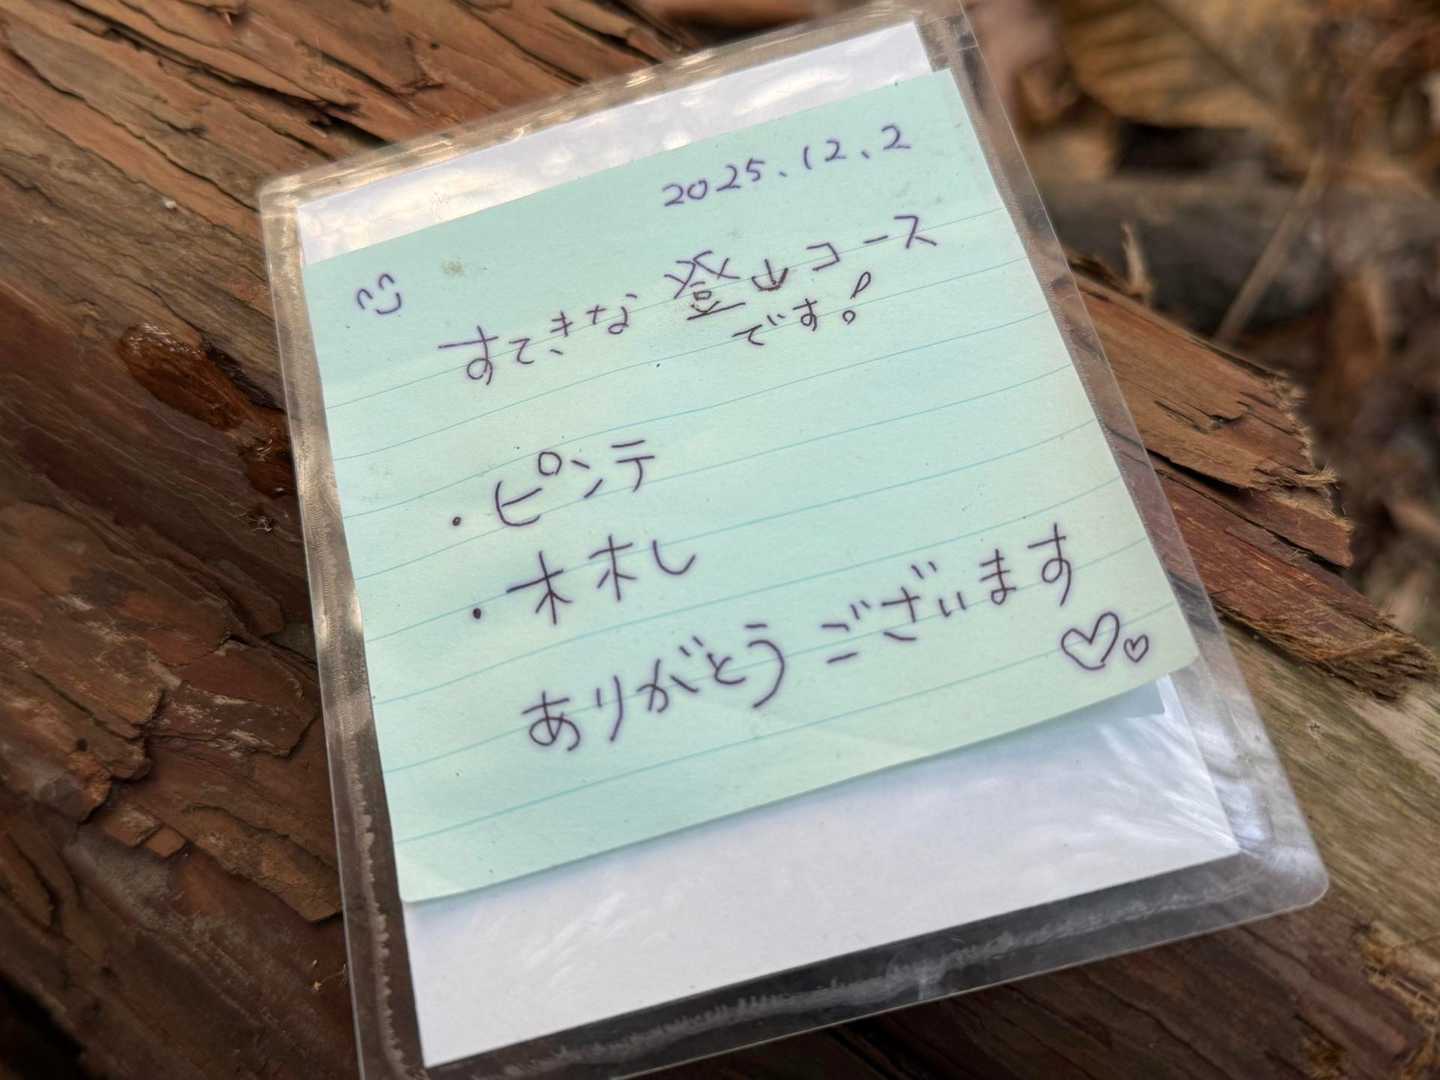 2025.12.2
すてきな登山コース
です!
・ピンテ
・木札
ありがとうございます